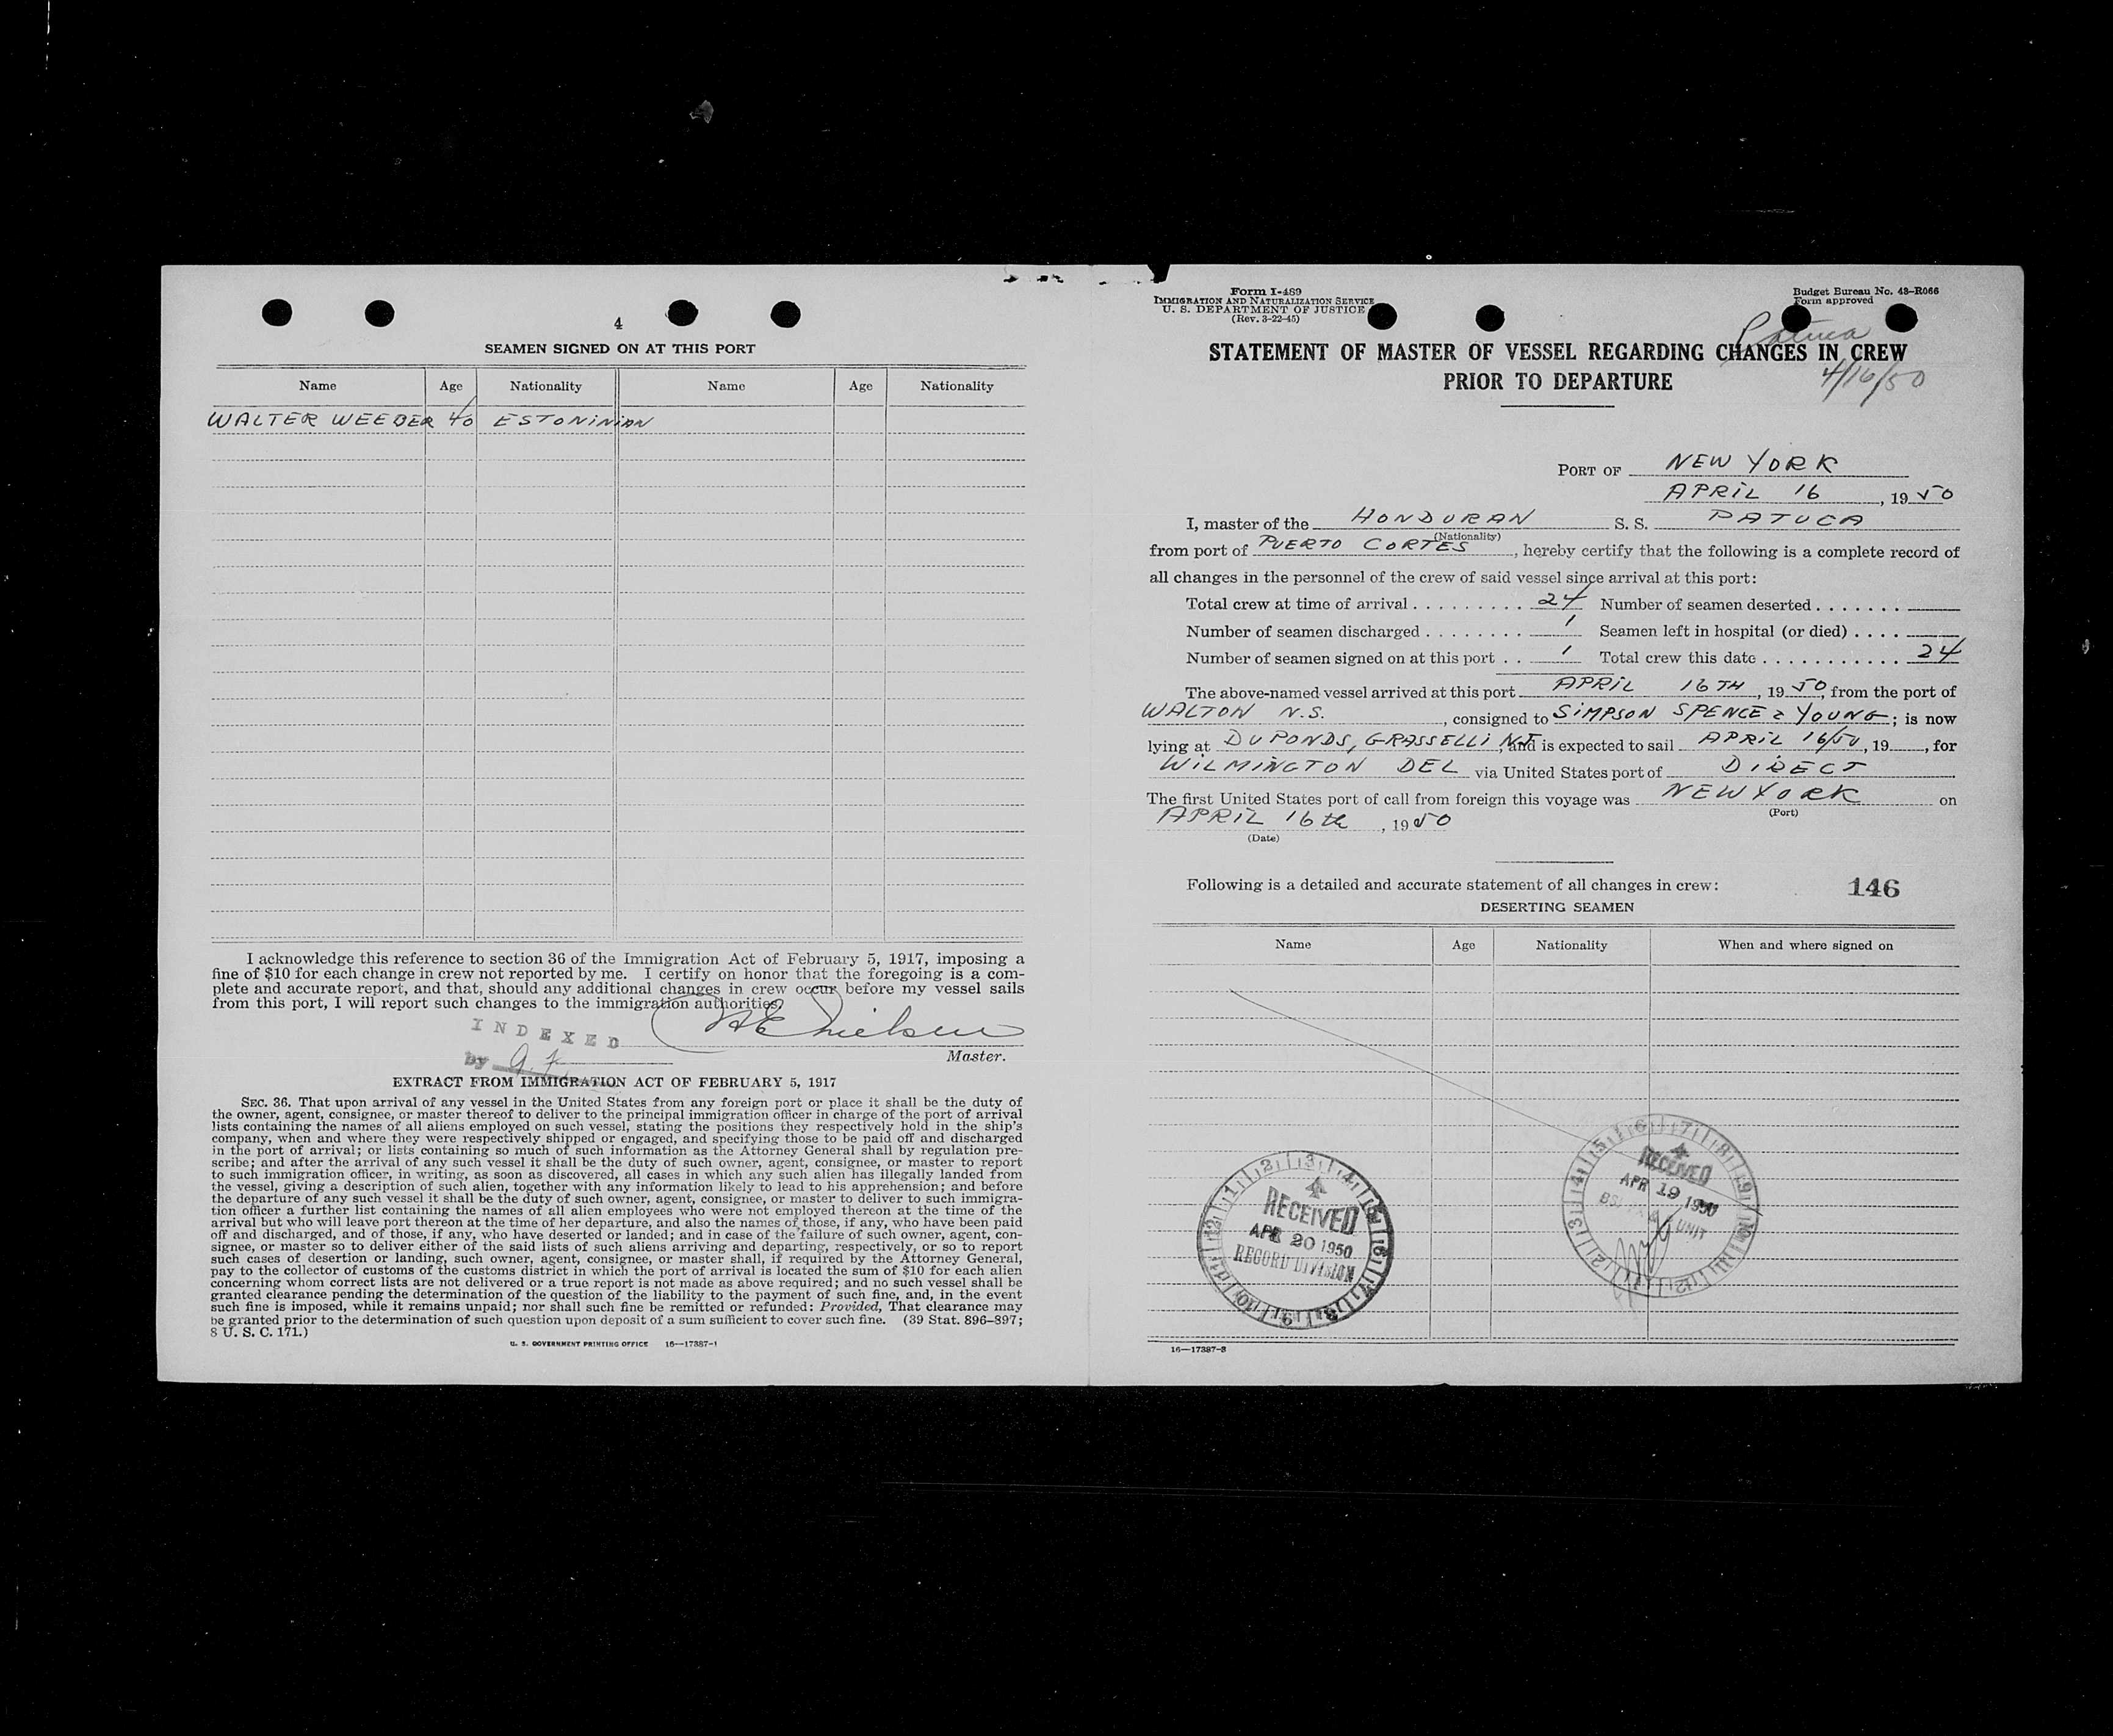 4
SEAMEN SIGNED ON AT THIS PORT
Name Age Nationality Name Age Nationality
WALTER WEEBER 40 ESTONINIAN
I acknowledge this reference to section 36 of the Immigration Act of February 5, 1917, imposing a
fine of $10 for each change in crew not reported by me. I certify on honor that the foregoing is a com-
plete and accurate report, and that, should any additional changes in crew occur before my vessel sails
from this port, I will report such changes to the immigration authorities.
INDEXED
by
Master.
EXTRACT FROM IMMIGRATION ACT OF FEBRUARY 5, 1917
SEC. 36. That upon arrival of any vessel in the United States from any foreign port or place it shall be the duty of
the owner, agent, consignee, or master thereof to deliver to the principal immigration officer in charge of the port of arrival
lists containing the names of all aliens employed on such vessel, stating the positions they respectively hold in the ship's
company, when and where they were respectively shipped or engaged, and specifying those to be paid off and discharged
in the port of arrival; or lists containing so much of such information as the Attorney General shall by regulation pre-
scribe; and after the arrival of any such vessel it shall be the duty of such owner, agent, consignee, or master to report
to such immigration officer, in writing, as soon as discovered, all cases in which any such alien has illegally landed from
the vessel, giving a description of such alien, together with any information likely to lead to his apprehension; and before
the departure of any such vessel it shall be the duty of such owner, agent, consignee, or master to deliver to such immigra-
tion officer a further list containing the names of all alien employees who were not employed thereon at the time of the
arrival but who will leave port thereon at the time of her departure, and also the names of those, if any, who have been paid
off and discharged, and of those, if any, who have deserted or landed; and in case of the failure of such owner, agent, con-
signee, or master so to deliver either of the said lists of such aliens arriving and departing, respectively, or so to report
such cases of desertion or landing, such owner, agent, consignee, or master shall, if required by the Attorney General,
pay to the collector of customs of the customs district in which the port of arrival is located the sum of $10 for each alien
concerning whom correct lists are not delivered or a true report is not made as above required; and no such vessel shall be
granted clearance pending the determination of the question of the liability to the payment of such fine, and, in the event
such fine is imposed, while it remains unpaid; nor shall such fine be remitted or refunded: Provided, That clearance may
be granted prior to the determination of such question upon deposit of a sum sufficient to cover such fine. (39 Stat. 896-897;
8 U. S. C. 171.)
U. S. GOVERNMENT PRINTING OFFICE 16—17387-1
Form I-489
IMMIGRATION AND NATURALIZATION SERVICE
U. S. DEPARTMENT OF JUSTICE
(Rev. 3-22-45)
Budget Bureau No. 43-R066
Form approved
Patuca
4/16/50
STATEMENT OF MASTER OF VESSEL REGARDING CHANGES IN CREW
PRIOR TO DEPARTURE
PORT OF NEW YORK
APRIL 16, 1950
I, master of the HONDURAN S. S. PATUCA
(Nationality)
from port of PUERTO CORTES, hereby certify that the following is a complete record of
all changes in the personnel of the crew of said vessel since arrival at this port:
Total crew at time of arrival 24 Number of seamen deserted
Number of seamen discharged 1 Seamen left in hospital (or died)
Number of seamen signed on at this port 1 Total crew this date 24
The above-named vessel arrived at this port APRIL 16TH, 1950, from the port of
WALTON N.S., consigned to SIMPSON SPENCE & YOUNG; is now
lying at DUPONDS, GRASSELLI NJ, and is expected to sail APRIL 16/50, 19, for
WILMINGTON DEL via United States port of DIRECT
The first United States port of call from foreign this voyage was NEW YORK on
(Port)
APRIL 16th, 1950
(Date)
Following is a detailed and accurate statement of all changes in crew:
146
DESERTING SEAMEN
Name Age Nationality When and where signed on
RECEIVED
APR 20 1950
RECORD DIVISION
RECEIVED
APR 19 1950
UNIT
16—17387-3